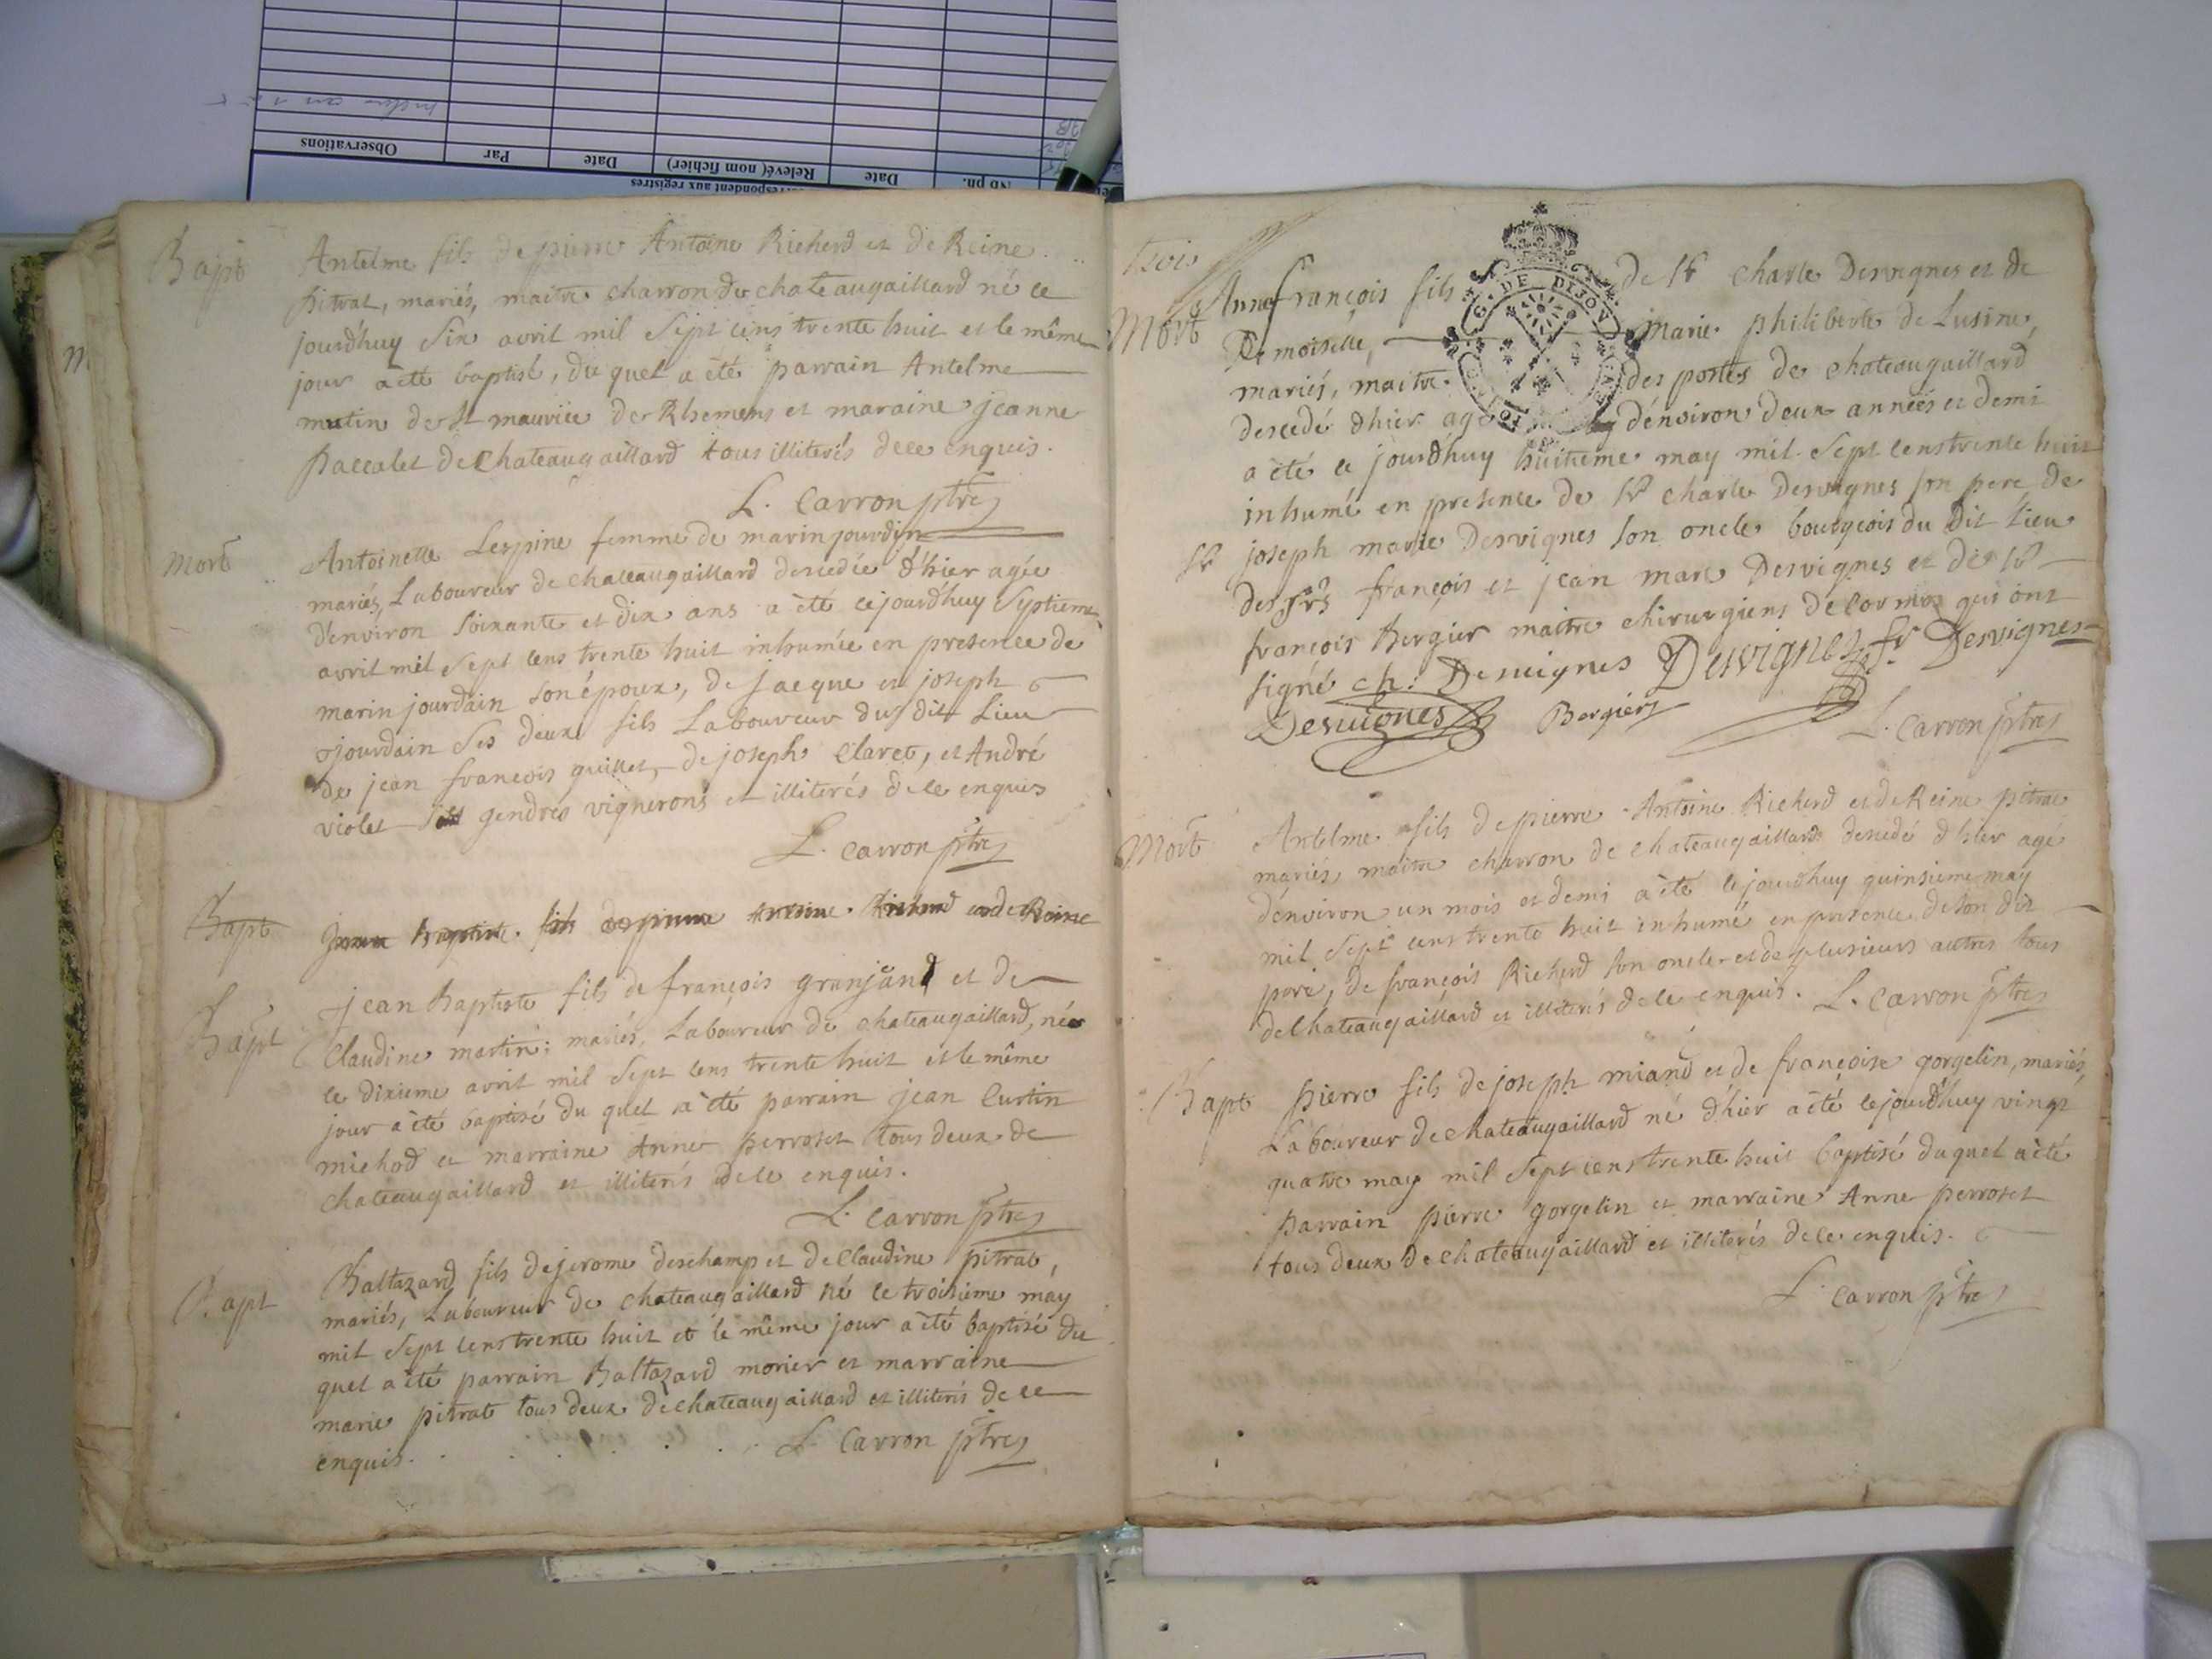 Observations
Par
Date
Relevé (nom fichier)
Date
Nb ph.
Bapt
Antelme fils de pierre Antoine Richerd et de Reine
pitrat, mariés, maitre charron de chateaugaillard né ce
jourd'huy six avril mil sept cens trente huit et le même
jour a èté baptisé, du quel a èté parrain Antelme
mutin de st maurice de Rhemens et maraine jeanne
paccalet de chateaugaillard tous illiterés de ce enquis.
L. Carron ptre
Mort
Antoinette Lespine femme de marin jourdain
mariés, Laboureur de chateaugaillard descedée d'hier agée
d'environ soixante et dix ans a èté cejourdhuy septieme
avril mil sept cens trente huit inhumée en presence de
marin jourdain son époux, de jacque et joseph
jourdain ses deux fils Laboureur du dit Lieu
de jean francois guillet, de joseph Claret, et André
violet ses gendres vignerons et illiterés de ce enquis
L. Carron ptre
Bapt
Jean baptiste fils de pierre Antoine Richerd et de Reine
Bapt
jean Baptiste fils de françois granjand et de
Claudine martin; mariés, Laboureur de chateaugaillard, né
le dixieme avril mil sept cens trente huit et le même
jour a èté baptisé du quel a èté parrain jean Curtin
michod et marraine Anne perroset tous deux de
chateaugaillard et illiterés de ce enquis.
L. Carron ptre
Bapt
Baltazard fils de jerome deschamp et de Claudine pitrat,
mariés, Laboureur de chateaugaillard né le troisieme may
mil sept cens trente huit et le même jour a èté baptisé du
quel a èté parrain Baltazard morier et marraine
marie pitrat tous deux de chateaugaillard et illiterés de ce
enquis. L. Carron ptre
Trois
Mort
Anne françois fils de Sr Charle Desvignes et de
Demoiselle, marie philiberte de Lusine,
mariés, maitre des postes de chateaugaillard
descedé d'hier agé d'environ deux années et demi
a èté ce jourd'huy huitieme may mil sept cens trente huit
inhumé en presence de Sr Charle Desvignes son pere de
Sr joseph marie Desvignes son oncle bourgeois du dit Lieu
des srs françois et jean marc Desvignes et de Sr
françois Bergier maitre chirurgiens de Cormoz qui ont
signé ch: Desvignes Desvignes fr Desvignes
Desvignes Bergier
L. Carron ptre
G. DE DIJON
Mort
Antelme fils de pierre Antoine Richerd et de Reine pitrat
mariés maitre charron de chateaugaillard descedé d'hier agé
d'environ un mois et demi a èté cejourdhuy quinsieme may
mil sept cens trente huit inhumé en presence de son dit
pere, de françois Richerd son oncle et de plusieurs autres tous
de chateaugaillard et illiterés de ce enquis. L. Carron ptre
Bapt
pierre fils de joseph miand et de françoise gorgelin, mariés,
Laboureur de chateaugaillard né d'hier a èté cejourd'huy vingt
quatre may mil sept cens trente huit baptisé du quel a èté
parrain pierre gorgelin et marraine Anne perroset
tous deux de chateaugaillard et illiterés de ce enquis.
L. Carron ptre